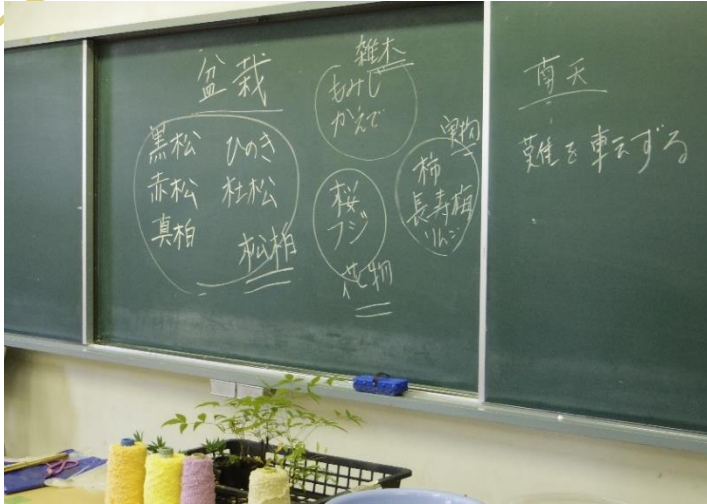 盆栽
黒松 ひのき
赤松 杜松
真柏
松柏
雑木
もみじ
かえで
桜
フジ
花物
実物
柿
長寿梅
りんご
南天
難を転ずる